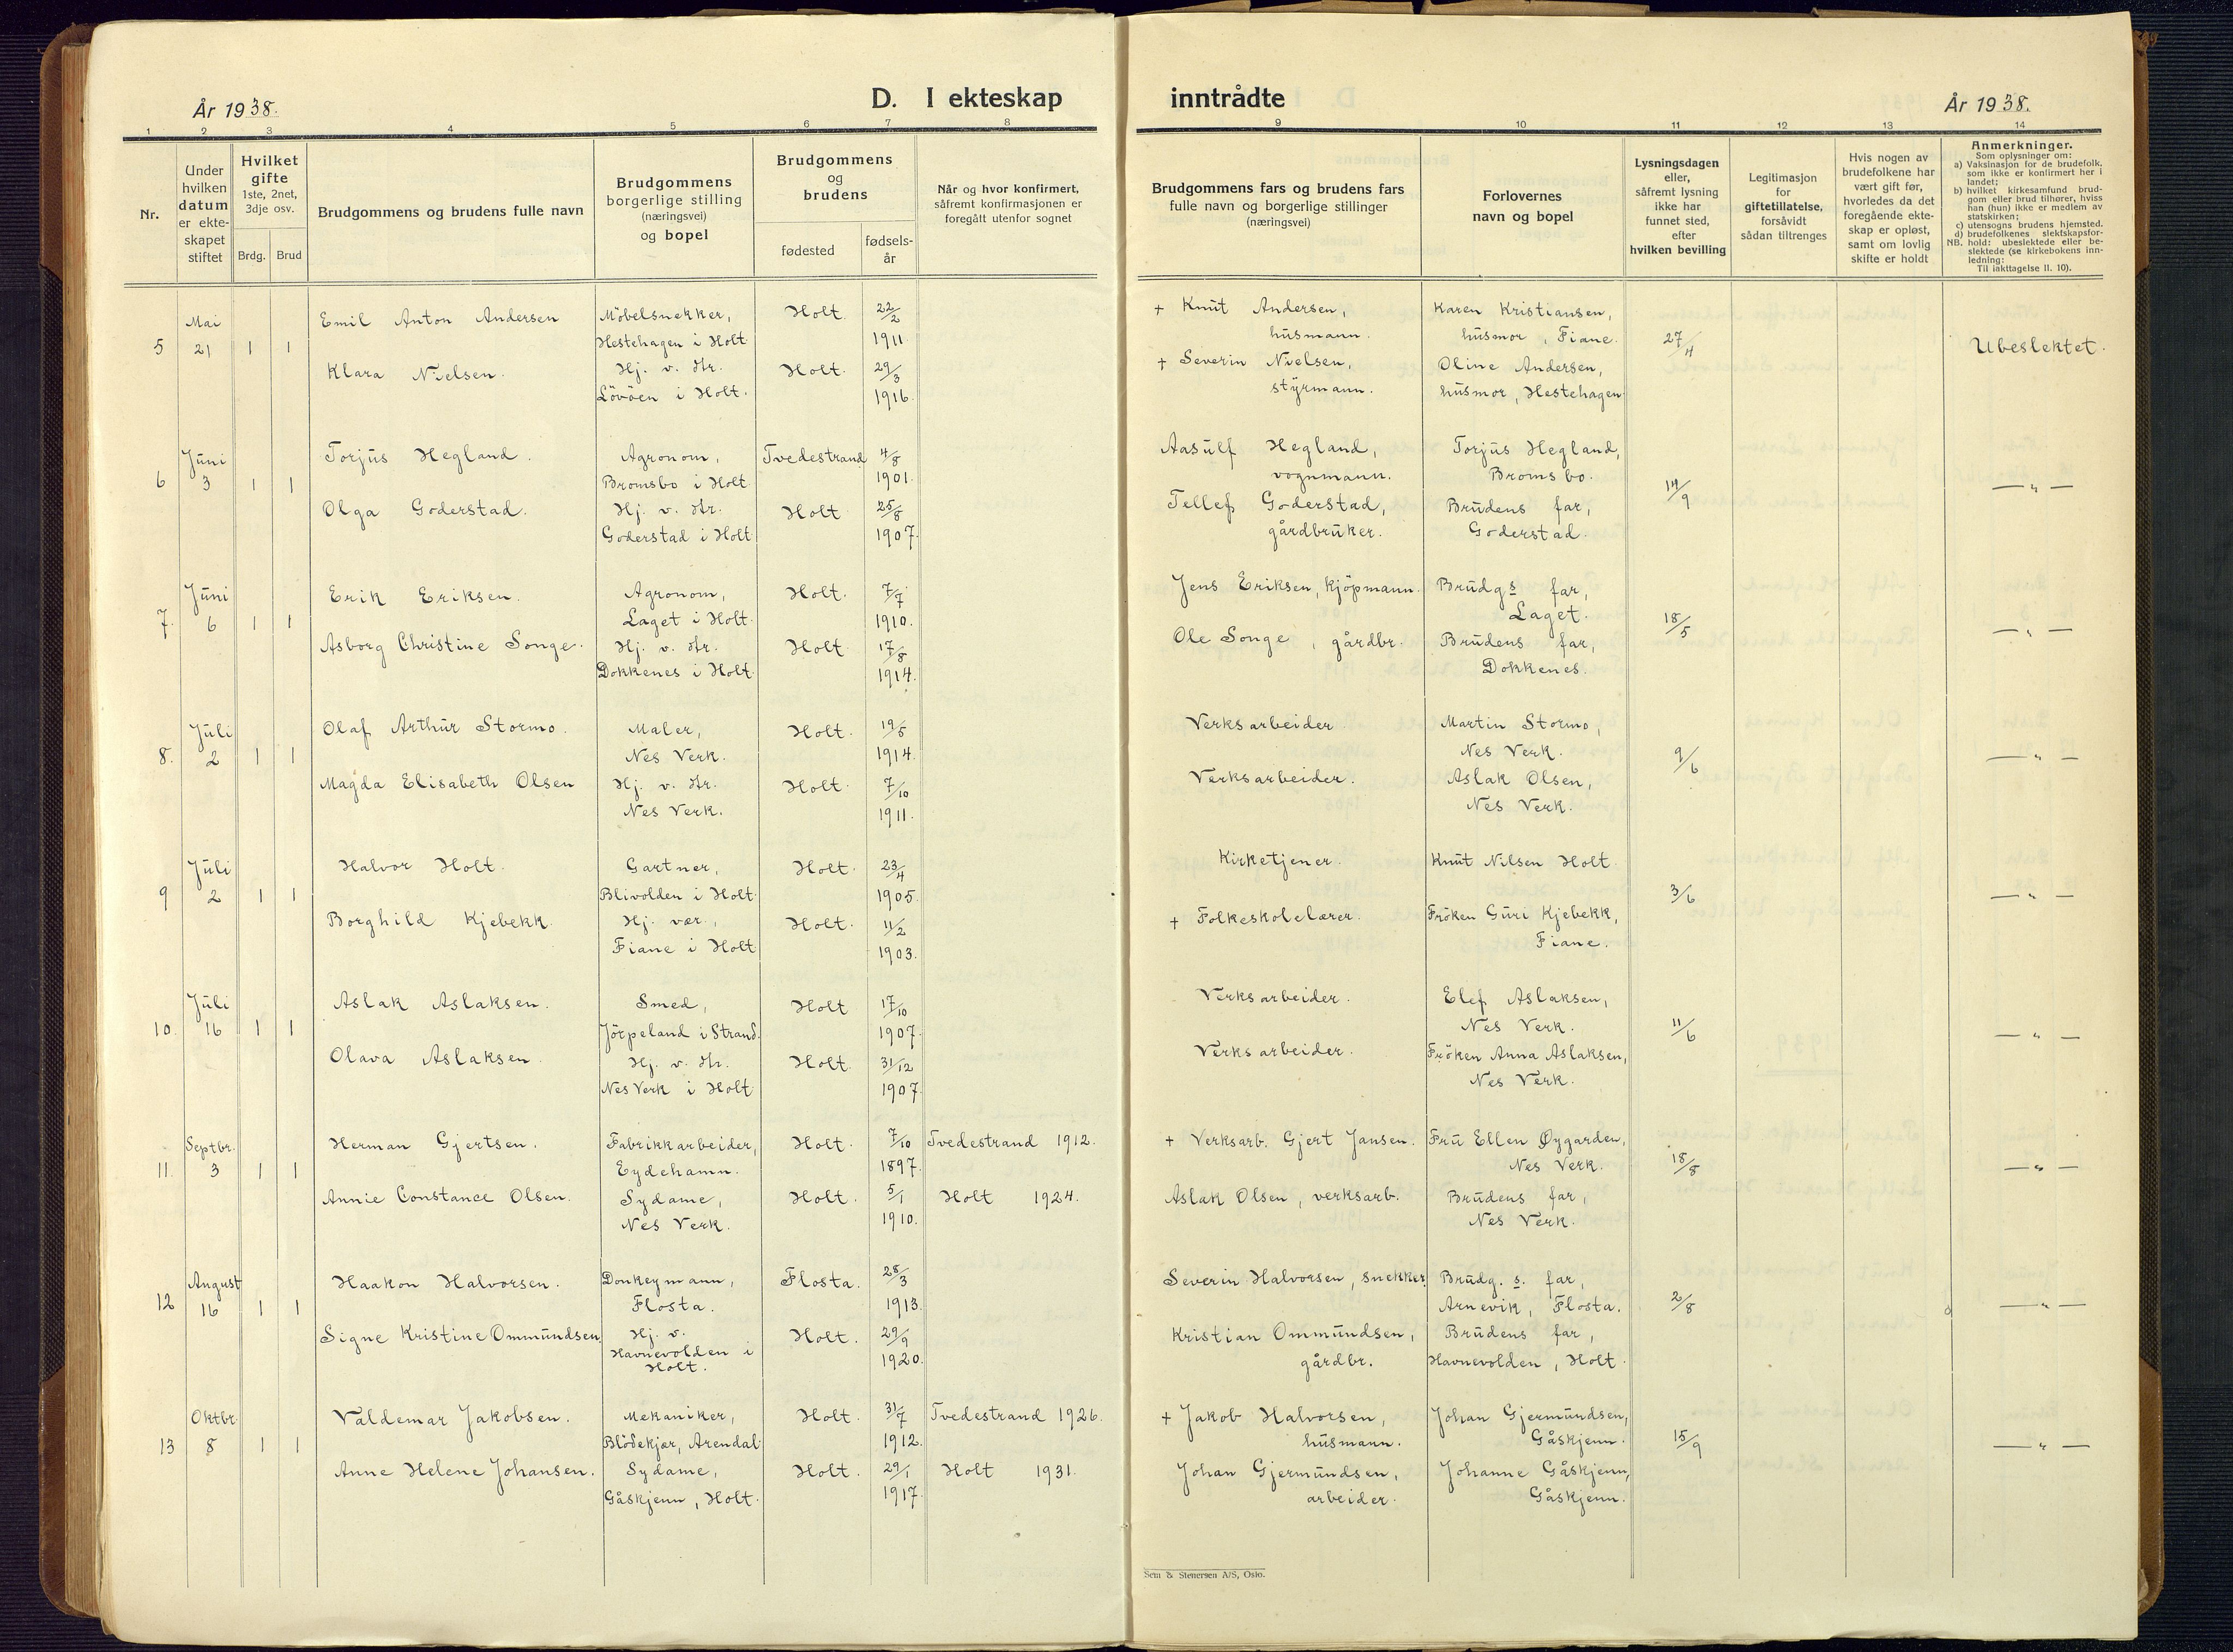 År 1938.
D. I ekteskap
inntrådte
År 1938.
1 2 3 4 5 6 7 8 9 10 11 12 13 14
Nr.
Under hvilken datum er ekte-skapet stiftet
Hvilket gifte
1ste, 2net, 3dje osv.
Brdg. Brud
Brudgommens og brudens fulle navn
Brudgommens borgerlige stilling (næringsvei) og bopel
Brudgommens og brudens
fødested
fødsels-år
Når og hvor konfirmert, såfremt konfirmasjonen er foregått utenfor sognet
Brudgommens fars og brudens fars fulle navn og borgerlige stillinger (næringsvei)
Forlovernes navn og bopel
Lysningsdagen eller, såfremt lysning ikke har funnet sted, efter hvilken bevilling
Legitimasjon for giftetillatelse, forsåvidt sådan tiltrenges
Hvis nogen av brudefolkene har vært gift før, hvorledes da det foregående ekte-skap er opløst, samt om lovlig skifte er holdt
Anmerkninger.
Som oplysninger om:
a) Vaksinasjon for de brudefolk, som ikke er konfirmert her i landet;
b) hvilket kirkesamfund brud-gom eller brud tilhører, hviss han (hun) ikke er medlem av statskirken;
c) utensogns brudens hjemsted.
d) brudefolkenes slektskapsfor-
NB. hold: ubeslektede eller be-slektede (se kirkebokens inn-ledning:
Til iakttagelse II. 10).
Mai Emil Anton Andersen Möbelsnekker, Holt. 22/2 + Knut Andersen, Karen Kristiansen,
5 21 1 1 Hestehagen i Holt 1911. husmann. husmor, Fiane. 27/4 Ubeslektet.
Klara Nielsen. Hj. v. Str. Holt. 29/3 + Severin Nielsen, Oline Andersen,
Lövöen i Holt. 1916. styrmann. husmor, Hestehagen
Juni Torjus Hegland. Agronom, Tvedestrand 4/8 Aasulf Hegland, Torjus Hegland,
6 3 1 1 Bromsbo i Holt. 1901. vognmann. Bromsbo. 14/9 — " —
Olga Goderstad. Hj. v. Str. Holt 25/8 Tellef Goderstad, Brudens far,
Goderstad i Holt 1907. gårdbruker. Goderstad.
Juni Erik Eriksen. Agronom, Holt. 7/7 Jens Eriksen, kjöpmann. Brudgs far,
7. 6 1 1 Laget i Holt. 1910. Laget. 18/5 — " —
Asborg Christine Songe. Hj. v. Str. Holt 17/8 Ole Songe, gårdbr. Brudens far,
Dokkenes i Holt 1914. Dokkenes.
Juli Olaf Arthur Stormo. Maler, Holt. 19/5 Verksarbeider Martin Stormo,
8. 2 1 1 Nes Verk. 1914. Nes Verk. 9/6 — " —
Magda Elisabeth Olsen Hj. v. Str. Holt. 7/10 Verksarbeider. Aslak Olsen,
Nes Verk. 1911. Nes Verk.
Juli Halvor Holt. Gartner, Holt. 23/4 Kirketjener. Knut Nilsen Holt.
9 2 1 1 Blivolden i Holt. 1905. 3/6 — " —
Borghild Kjebekk. Hj. vær., Holt. 11/2 + Folkeskolelærer. Fröken Guri Kjebekk,
Fiane i Holt 1903. Fiane.
Juli Aslak Aslaksen. Smed, Holt 17/10 Verksarbeider. Elef Aslaksen,
10. 16 1 1 Jörpeland i Strand. 1907. Nes Verk. 11/6 — " —
Olava Aslaksen. Hj. v. Str. Holt. 31/12 Verksarbeider. Fröken Anna Aslaksen,
Nes Verk i Holt 1907. Nes Verk.
Septbr. Herman Gjertsen. Fabrikkarbeider, Holt. 7/10 Tvedestrand 1912. + Verksarb. Gjert Jansen. Fru Ellen Øygarden,
11. 3 1 1 Eydehamn. 1897. Nes Verk. 18/8 — " —
Annie Constance Olsen. Sydame, Holt. 5/1 Holt 1924. Aslak Olsen, verksarb. Brudens far,
Nes Verk. 1910. Nes Verk.
August Haakon Halvorsen. Donkeymann, Flosta. 28/3 Severin Halvorsen, snekker. Brudg. s. far,
12 16 1 1 Flosta. 1913. Arnevik, Flosta. 2/8 — " —
Signe Kristine Ommundsen Hj. v. Holt. 29/9 Kristian Ommundsen, Brudens far,
Havnevolden i Holt. 1920. gårdbr. Havnevolden, Holt.
Oktbr. Valdemar Jakobsen. Mekaniker, Holt. 31/7 Tvedestrand 1926. + Jakob Halvorsen, Johan Gjermundsen,
13 8 1 1 Blödekjær, Arendal. 1912. husmann. Gåskjenn. 15/9 — " —
Anne Helene Johansen. Sydame, Holt. 29/1 Holt 1931. Johan Gjermundsen, Johanne Gåskjenn,
Gåskjenn, Holt. 1917. arbeider. Gåskjenn.
Sem & Stenersen A/S, Oslo.